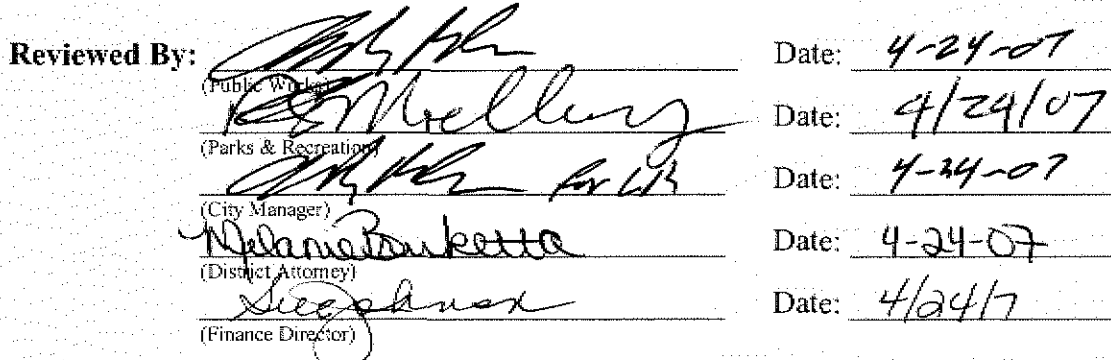 Reviewed By: Date: 4-24-07
(Public Works)
Date: 4/24/07
(Parks & Recreation)
for Date: 4-24-07
(City Manager)
Melanie Burketta Date: 4-24-07
(District Attorney)
Date: 4/24/7
(Finance Director)